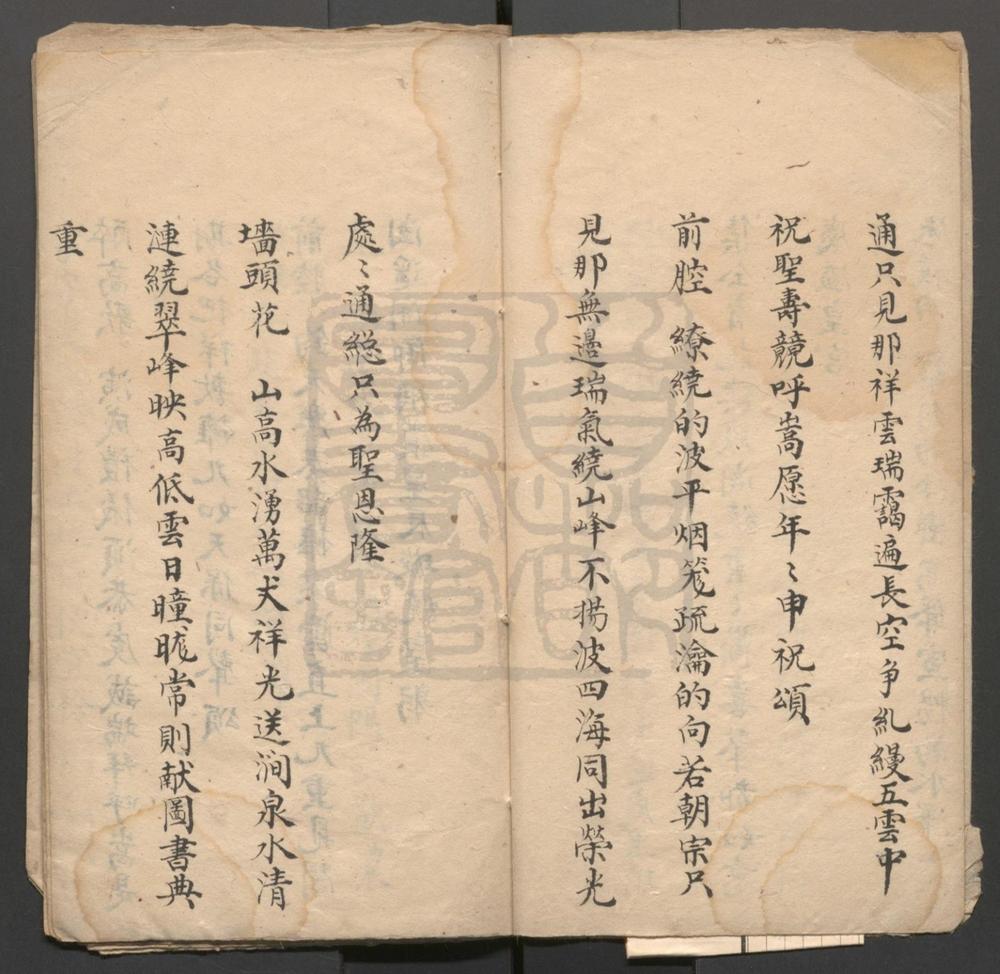 通只見那祥雲瑞靄遍長空爭糺縵五雲中
祝聖壽競呼嵩愿年〻申祝頌
前腔 繚繞的波平烟笼疏瀹的向若朝宗只
見那無邊瑞氣繞山峰不揚波四海同出榮光
處〻通総只為聖恩隆
墻頭花 山高水湧萬丈祥光送澗泉水清
漣繞翠峰映高低雲日曈曨常則献圖書典
重